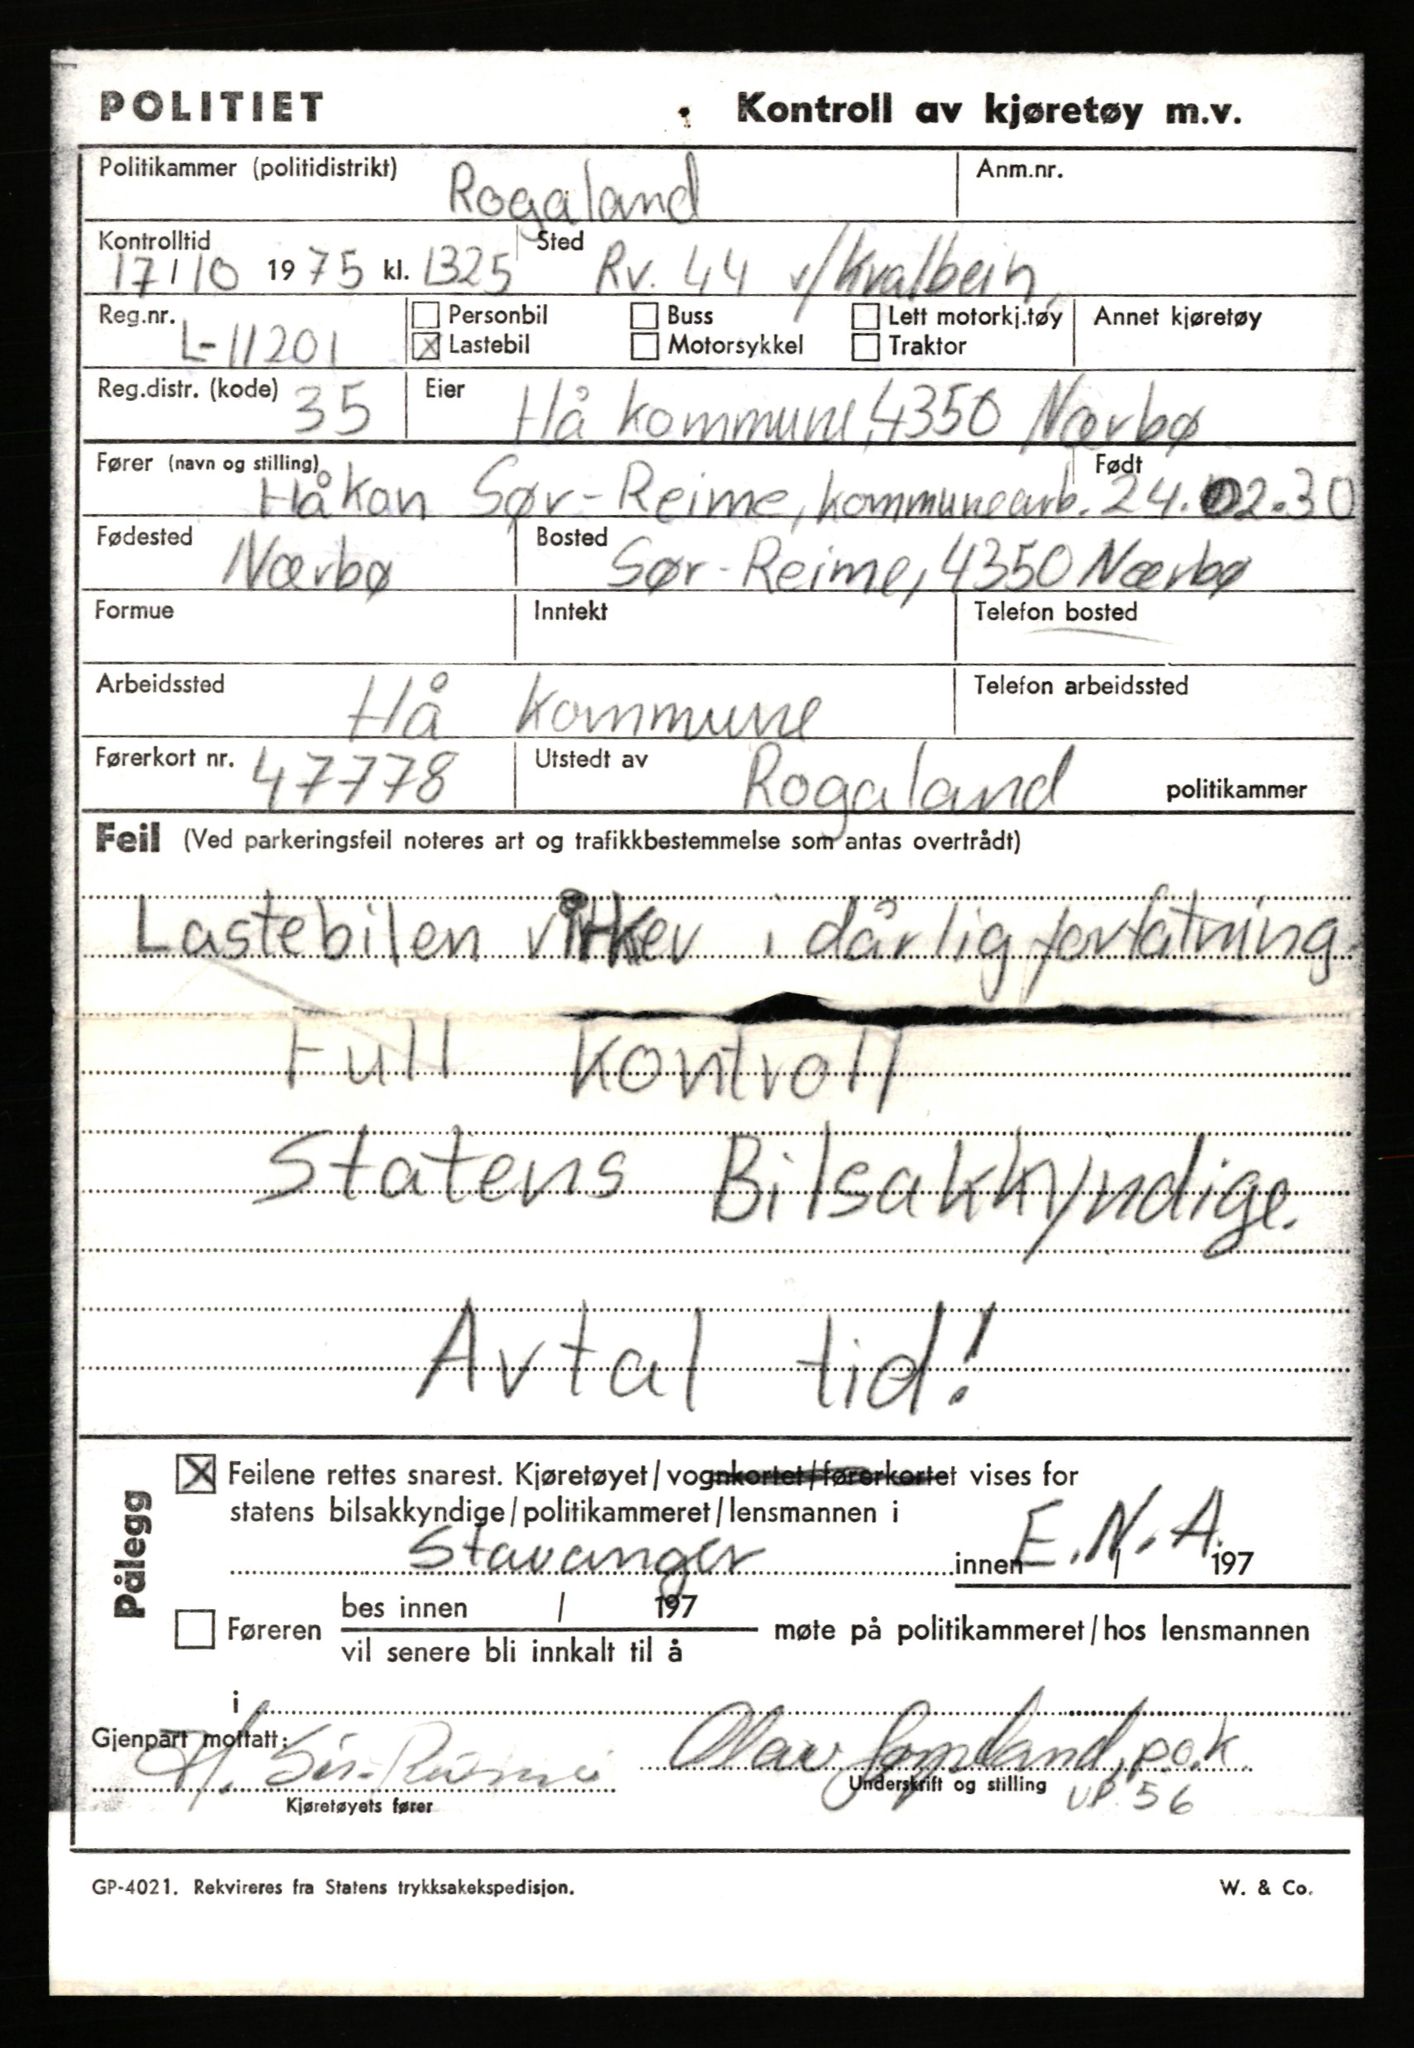 POLITIET Kontroll av kjøretøy m.v.
Politikammer (politidistrikt) Rogaland Anm.nr.
Kontrolltid 17/10 1975 kl. 1325 Sted Rv. 44 v/Kvalbein,
Reg.nr. L-11201 Personbil Buss Lett motorkj.tøy Annet kjøretøy
Lastebil Motorsykkel Traktor
Reg.distr. (kode) 35 Eier Hå kommune, 4350 Nærbø
Fører (navn og stilling) Håkon Sør-Reime, kommunearb. Født 24.02.30
Fødested Nærbø Bosted Sør-Reime, 4350 Nærbø
Formue Inntekt Telefon bosted
Arbeidssted Hå kommune Telefon arbeidssted
Førerkort nr. 47778 Utstedt av Rogaland politikammer
Feil (Ved parkeringsfeil noteres art og trafikkbestemmelse som antas overtrådt)
Lastebilen virker i dårlig forfatning.
Full kontroll
Statens Bilsakkyndige.
Avtal tid!
Pålegg
Feilene rettes snarest. Kjøretøyet/vognkortet/førerkortet vises for
statens bilsakkyndige/politikammeret/lensmannen i
Stavanger innen E.N.A. / 197
bes innen / 197
Føreren møte på politikammeret/hos lensmannen
vil senere bli innkalt til å
i
Gjenpart mottatt: H. Sør-Reime Olav p.o.k.
Kjøretøyets fører Underskrift og stilling UP 56
GP-4021. Rekvireres fra Statens trykksakekspedisjon. W. & Co.